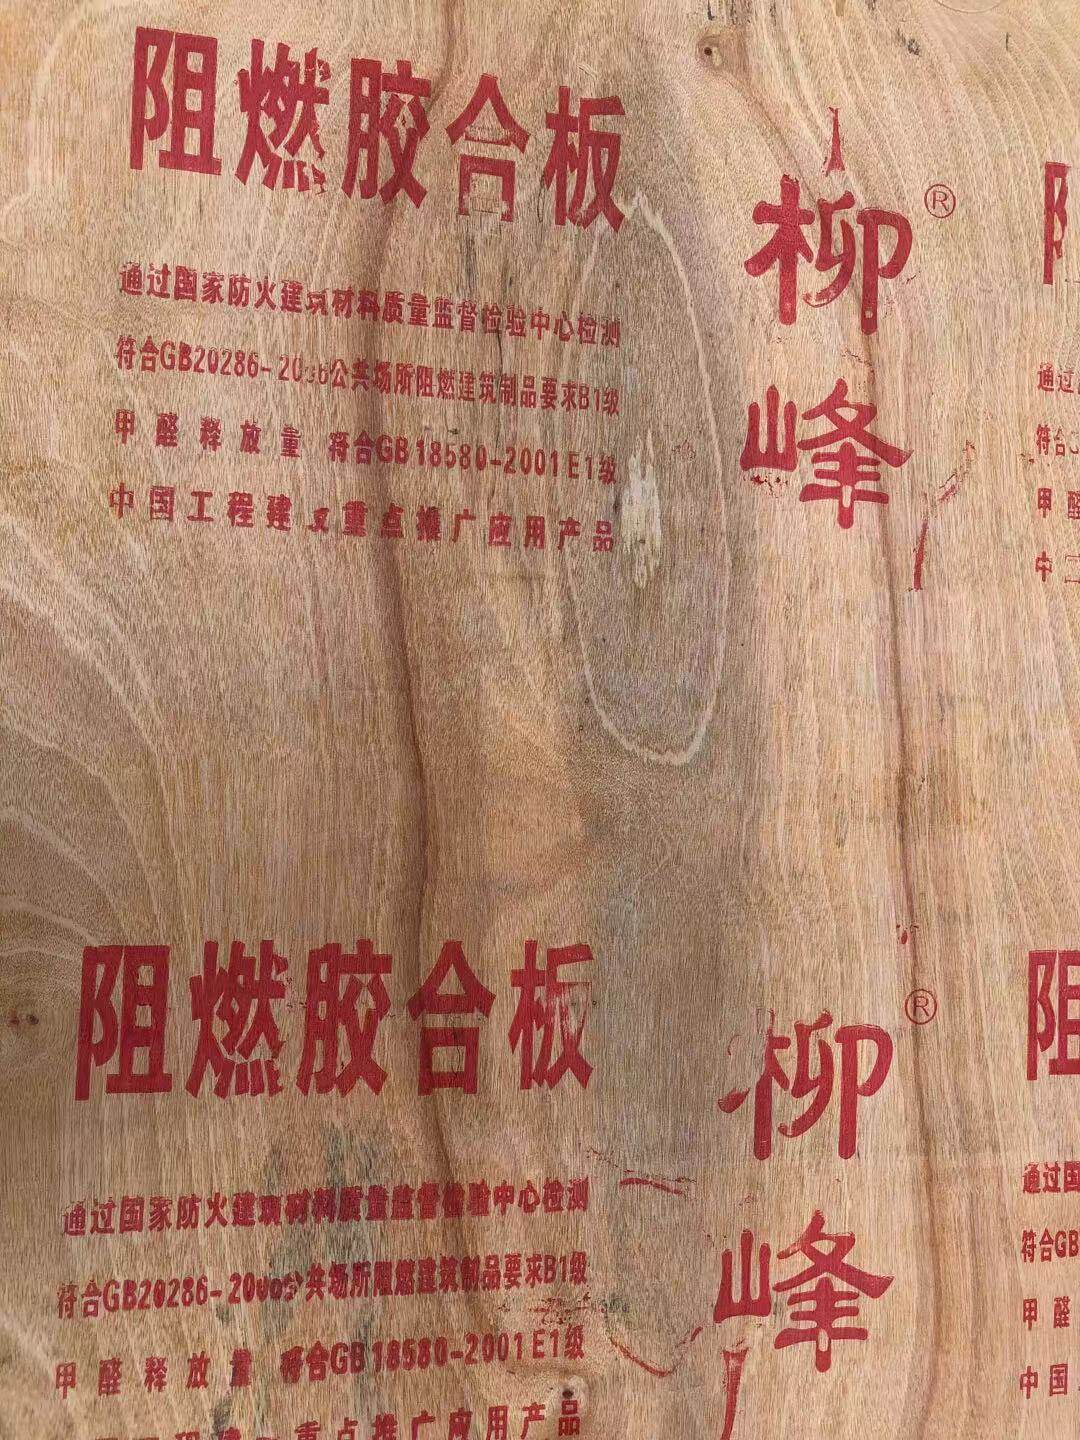 阻燃胶合板
通过国家防火建筑材料质量监督检验中心检测
符合GB20286-2006公共场所阻燃建筑制品要求B1级
甲醛释放量 符合GB18580-2001E1级
中国工程建设重点推广应用产品
柳峰®
阻
通过
符合
甲醛
中国
阻燃胶合板
通过国家防火建筑材料质量监督检验中心检测
符合GB20286-2006公共场所阻燃建筑制品要求B1级
甲醛释放量 符合GB18580-2001E1级
中国工程建设重点推广应用产品
柳峰®
阻
通过国
符合GB
甲醛
中国